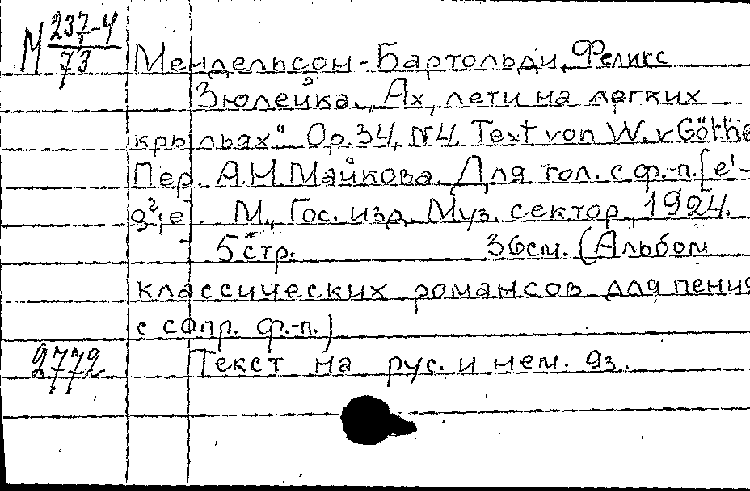 М 237-4
73
Мендельсон-Бартольди, Феликс
Зюлейка. „Ах, лети на легких
крыльях" Op. 34, №4. Text von W. v Göthe
Пер. А.Н. Майкова. Для гол. с ф.-п. [e'-
g²; e]. М., Гос. изд. Муз. сектор, 1924.
5 стр. 36см. (Альбом
классических романсов для пения
с сопр. ф.-п.)
2772 Текст на рус. и нем. яз.